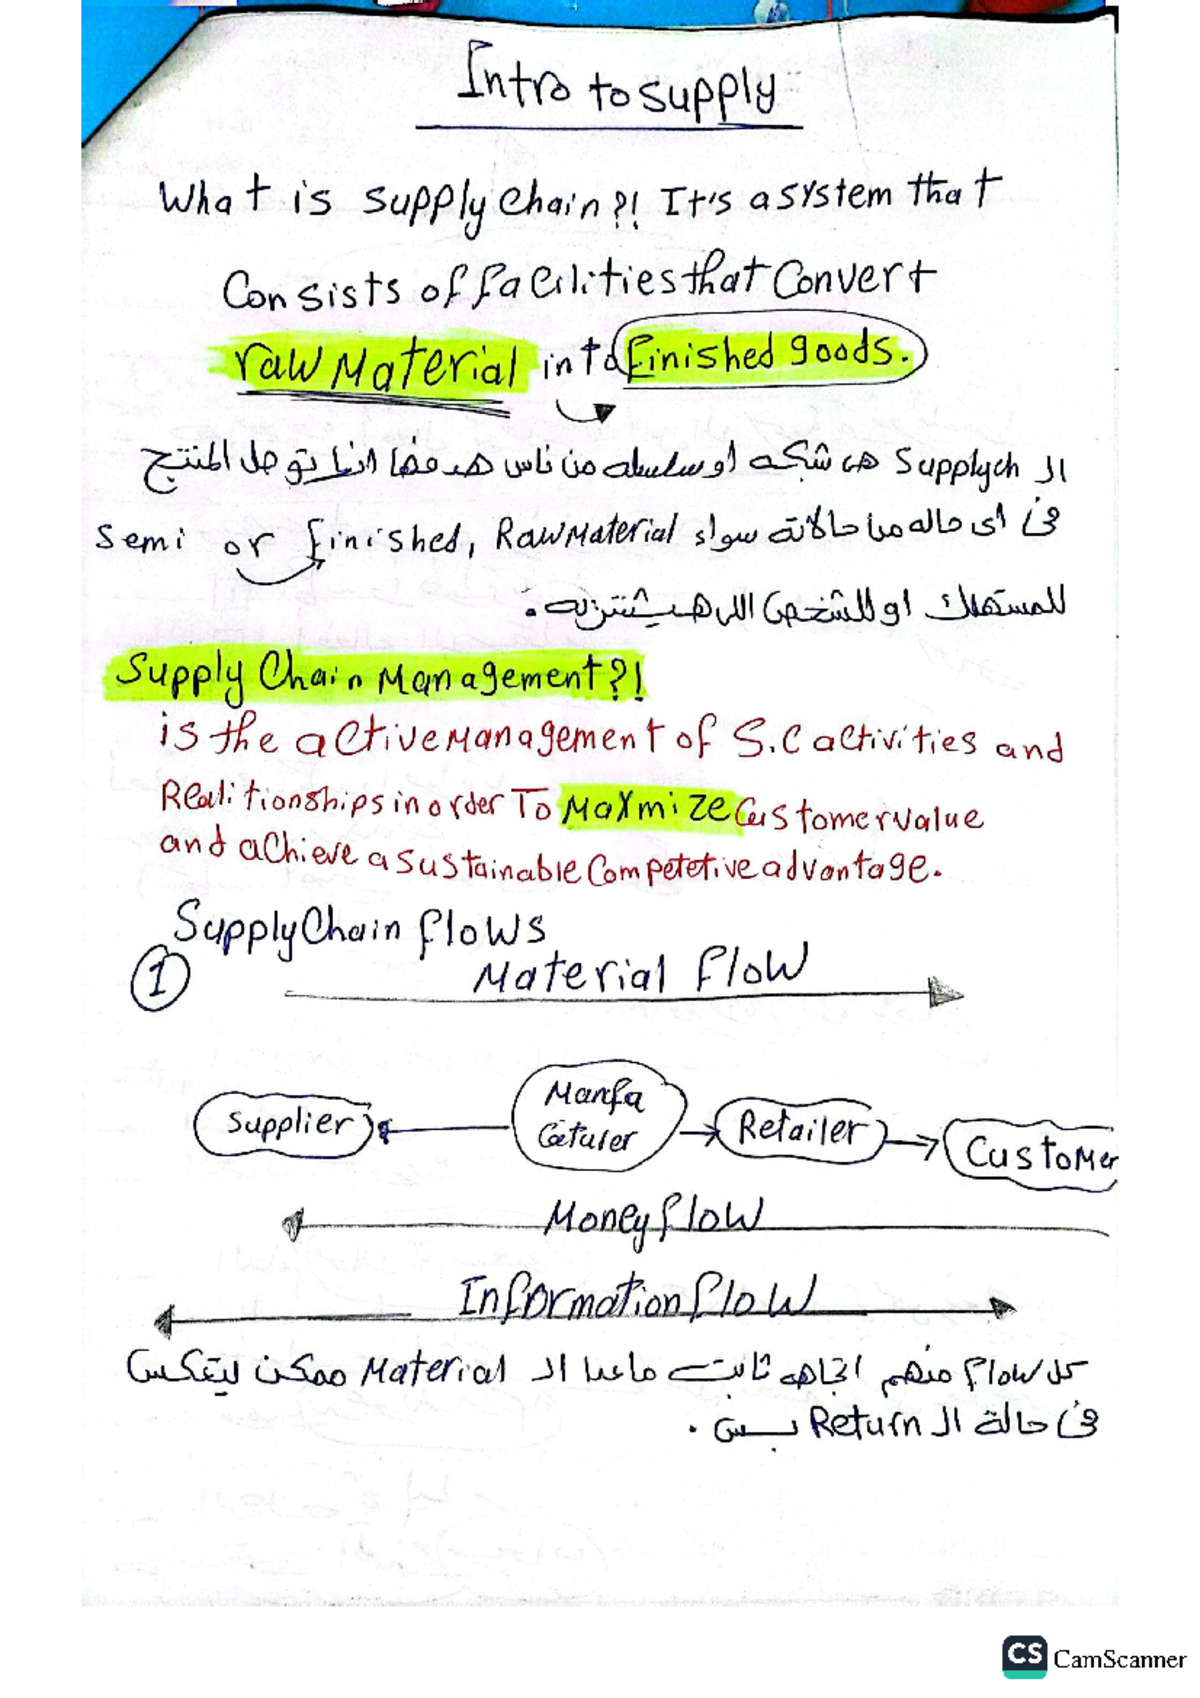 Intro to supply
What is supply Chain?! It's a system that
Consists of facilities that Convert
raw Material into finished goods.
ال Supply ch هى شبكه او سلسله من ناس هدفها انها توصل المنتج
فى اى حاله من حالاته سواء Raw Material, finished or semi
للمستهلك او للشخص اللى هيشتريه.
Supply Chain Management?!
is the active Management of S.C activities and
Realitionships in order To Maxmize Customer value
and achieve a sustainable Competetive advantage.
Supply Chain flows
1
Material flow
Supplier
Manfa
Cturer
Retailer
Customer
Money flow
Information flow
كل flow منهم اتجاهه ثابت ماعدا ال Material ممكن يتعكس
فى حالة ال Return بس.
CS CamScanner